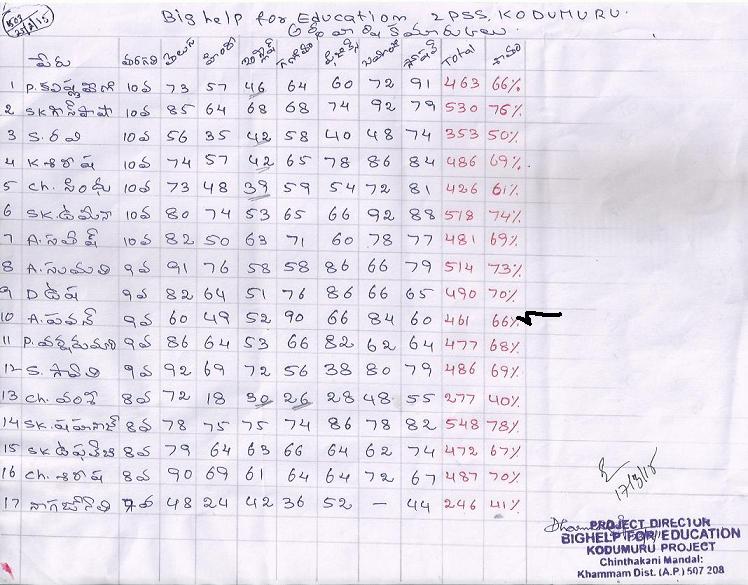 1503
25/3/15
Big help for Education ZPSS, KODUMURU.
అర్ధ వార్షిక మార్కులు
పేరు తరగతి తెలుగు హిందీ ఇంగ్లీష్ గణితం సోషల్ Total శాతం
1 P. 10వ 73 57 46 64 60 72 91 463 66%
2 SK 10వ 85 64 68 68 74 92 79 530 76%
3 S. రవి 10వ 56 35 42 58 40 48 74 353 50%
4 K శిరీష 10వ 74 57 42 65 78 86 84 486 69%.
5 Ch. సింధు 10వ 73 48 39 59 54 72 81 426 61%
6 SK. 10వ 80 74 53 65 66 92 88 518 74%
7 A. సతీష్ 10వ 82 50 63 71 60 78 77 481 69%
8 A. సుమతి 9వ 91 76 58 58 86 66 79 514 73%
9 D ఉష 9వ 82 64 51 76 86 66 65 490 70%
10 A. పవన్ 9వ 60 49 52 90 66 84 60 461 66%
11 P. 9వ 86 64 53 66 82 62 64 477 68%
12 S. 9వ 92 69 72 56 38 80 79 486 69%
13 Ch. వంశీ 8వ 72 18 30 26 28 48 55 277 40%
14 SK. 8వ 78 75 75 74 86 78 82 548 78%
15 SK 8వ 79 64 63 66 64 62 74 472 67%
16 Ch. శిరీష 8వ 90 69 61 64 64 72 67 487 70%
17 7వ 48 24 42 36 52 - 44 246 41%
17/3/15
PROJECT DIRECTOR
BIGHELP FOR EDUCATION
KODUMURU PROJECT
Chinthakani Mandal:
Khammam Dist. (A.P.) 507 208